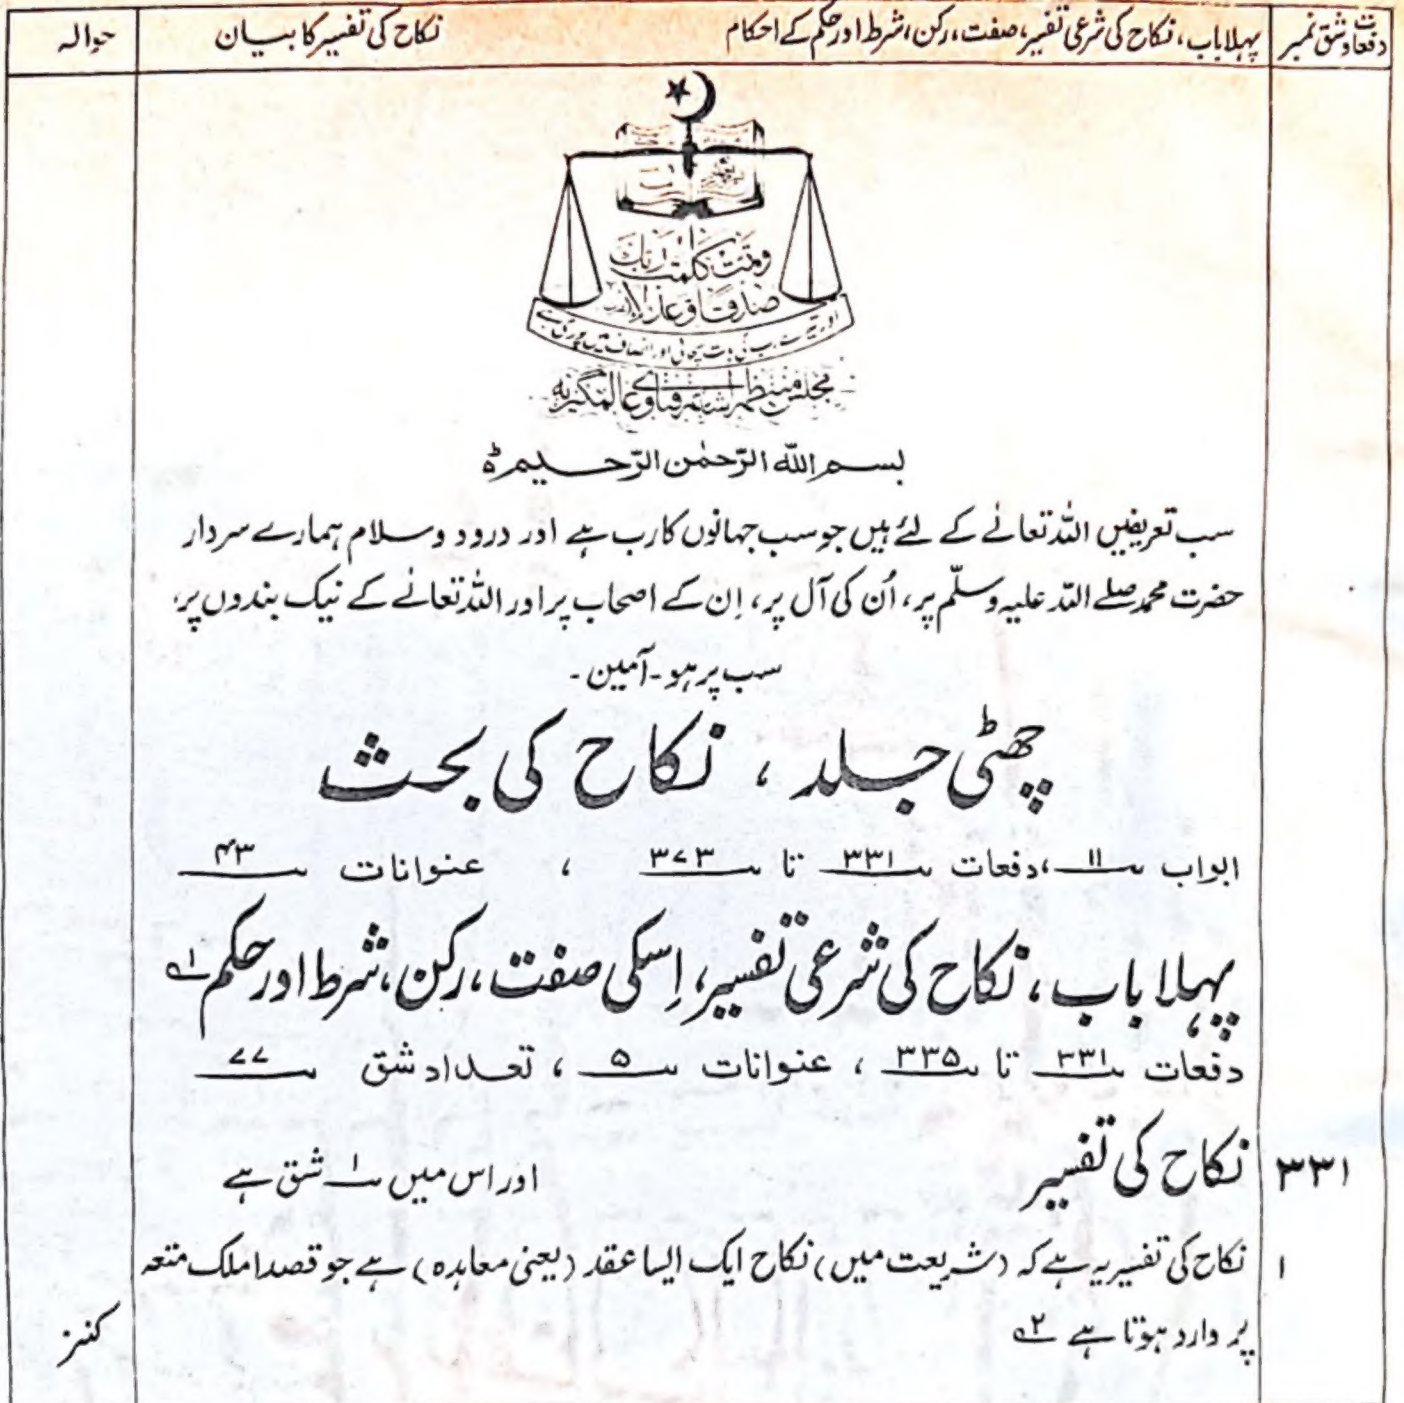 دفعات و شق نمبر | پہلا باب، نکاح کی شرعی تفسیر، صفت، رکن، شرط اور حکم کے احکام | نکاح کی تفسیر کا بیان | حوالہ
وتمت كلمت ربك
صدقا وعدلا
اور تیرے رب کی بات سچائی اور انصاف میں پوری ہے
بسم اللہ الرّحمٰن الرّحیم
سب تعریفیں اللہ تعالےٰ کے لئے ہیں جو سب جہانوں کا رب ہے اور درود و سلام ہمارے سردار
حضرت محمد صلے اللہ علیہ وسلّم پر، اُن کی آل پر، اِن کے اصحاب پر اور اللہ تعالےٰ کے نیک بندوں پر،
سب پر ہو۔ آمین۔
چھٹی جلد، نکاح کی بحث
ابواب ۱۱، دفعات ۳۳۱ تا ۳۷۳، عنوانات ۴۳
پہلا باب، نکاح کی شرعی تفسیر، اِسکی صفت، رکن، شرط اور حکم ؎۱
دفعات ۳۳۱ تا ۳۳۵، عنوانات ۵، تعداد شق ۷۷
۳۳۱ نکاح کی تفسیر اور اس میں ۱ شق ہے
۱ نکاح کی تفسیر یہ ہے کہ (شریعت میں) نکاح ایک ایسا عقد (یعنی معاہدہ) ہے جو قصدا ملک متعہ
پر وارد ہوتا ہے ؎۲ کنز